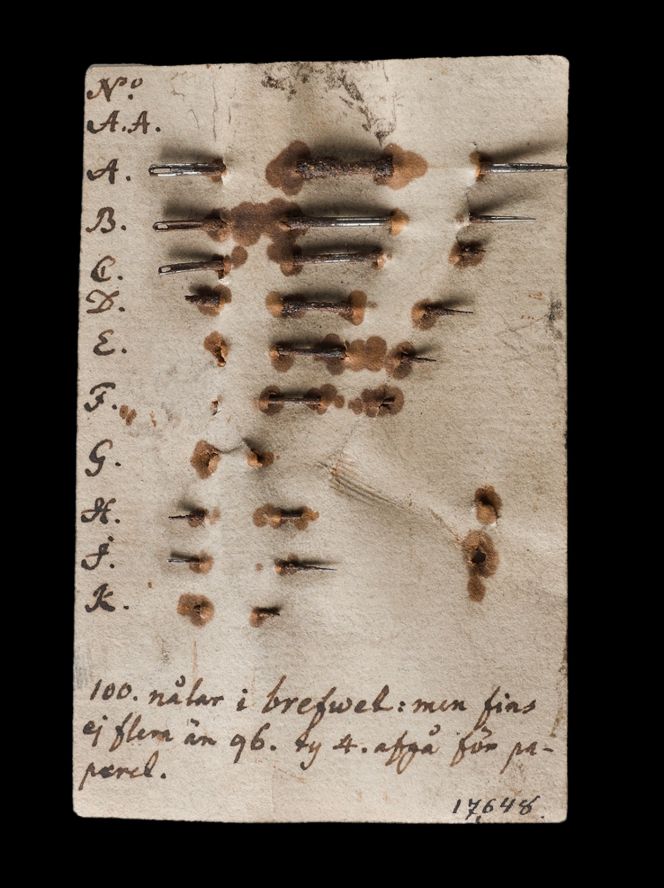 No.
A.A.
A.
B.
C.
D.
E.
F.
G.
H.
J.
K.
100. nålar i brefwet: men fins
ej flera än 96. ty 4. afgå för pa-
peret.
17,648.